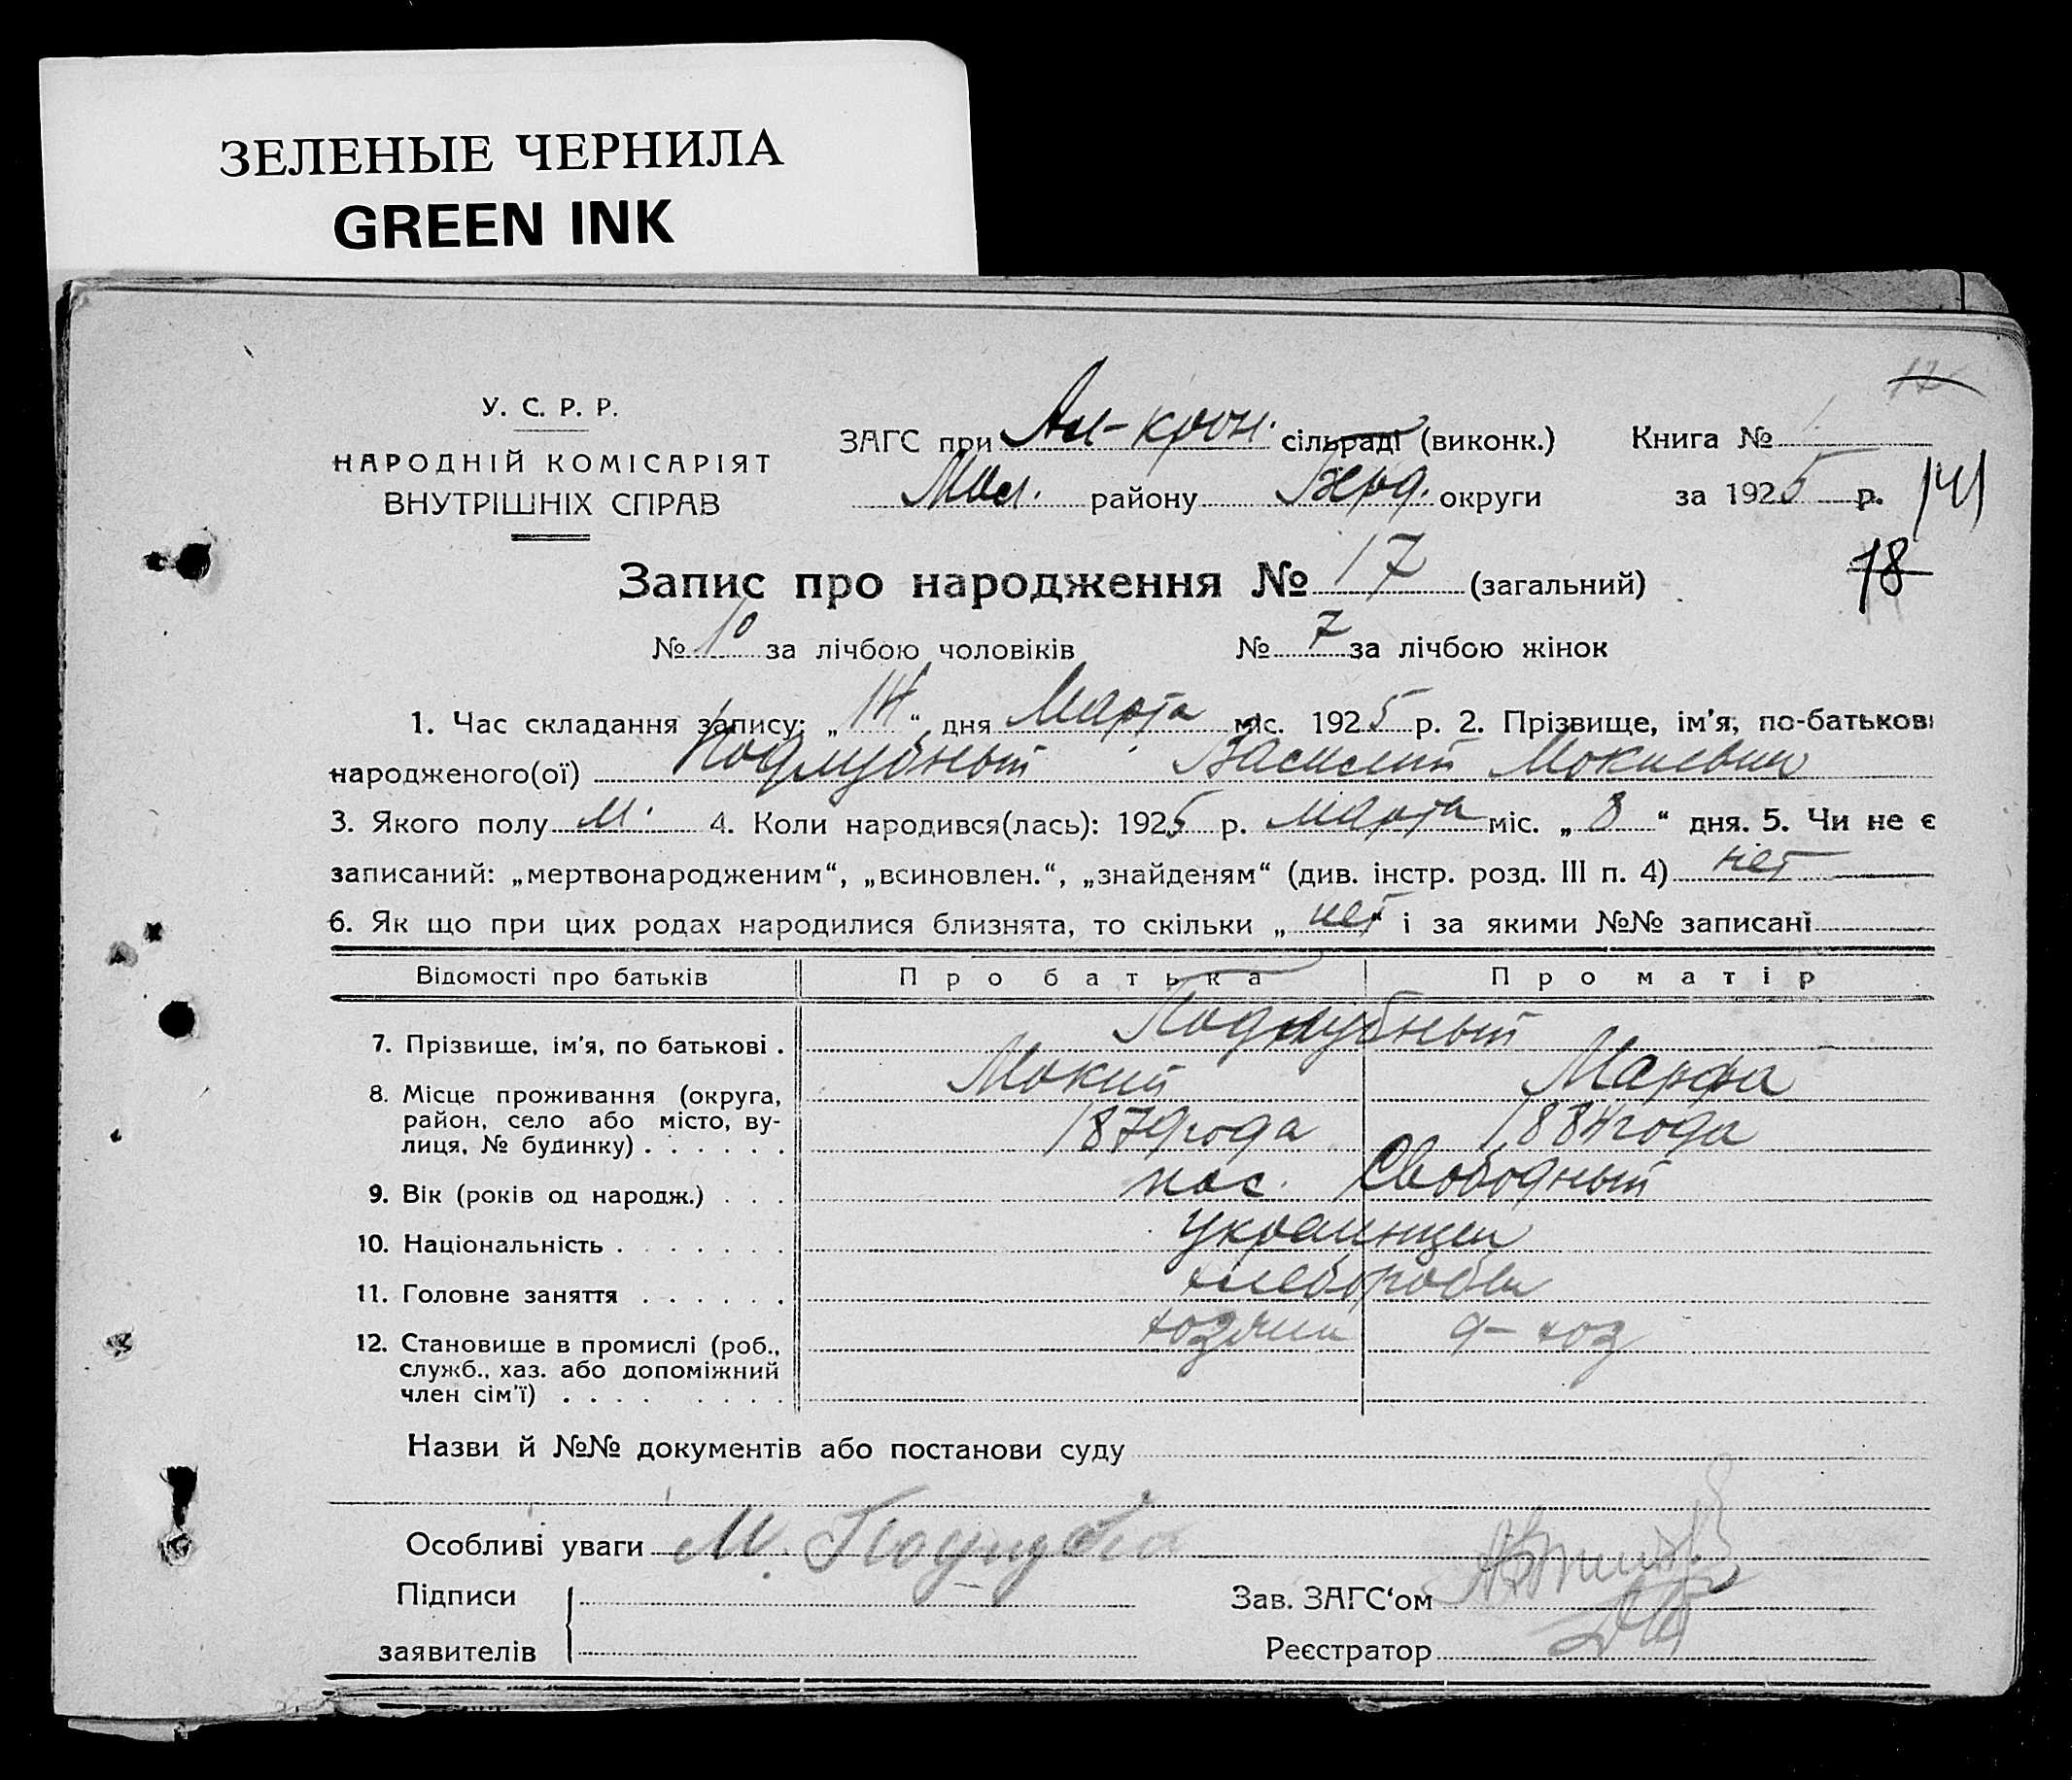 ЗЕЛЕНЫЕ ЧЕРНИЛА
GREEN INK
У. С. Р. Р.
НАРОДНІЙ КОМІСАРІЯТ
ВНУТРІШНІХ СПРАВ
ЗАГС при Ан-крон. сільраді (виконк.) Книга № 1
району Берд. округи за 1925 р. 141
Запис про народження № 17 (загальний) 18
№ 10 за лічбою чоловіків № 7 за лічбою жінок
1. Час складання запису: „14“ дня Марта міс. 1925 р. 2. Прізвище, ім'я, по-батькові
народженого(ої) Подлубный Василий Мокиевич
3. Якого полу м. 4. Коли народився(лась): 1925 р. марта міс. „8“ дня. 5. Чи не є
записаний: „мертвонародженим“, „всиновлен.“, „знайденям“ (див. інстр. розд. III п. 4) нет
6. Як що при цих родах народилися близнята, то скільки „нет“ і за якими №№ записані
Відомості про батьків Про батька Про матір
7. Прізвище, ім'я, по батькові . Подлубный
Мокий Марфа
8. Місце проживання (округа,
район, село або місто, ву-
лиця, № будинку) . . . . . . 1879 года 1884 года
9. Вік (років од народж.) . . . пос. Свободный
10. Національність . . . . . . . украинцы
11. Головне заняття . . . . . . хлеборобы
12. Становище в промислі (роб., хозяин д-хоз
служб., хаз. або допоміжний
член сім'ї) . . . . . . . .
Назви й №№ документів або постанови суду
Особливі уваги М. Подлубно
Підписи
заявителів
Зав. ЗАГС'ом
Реєстратор